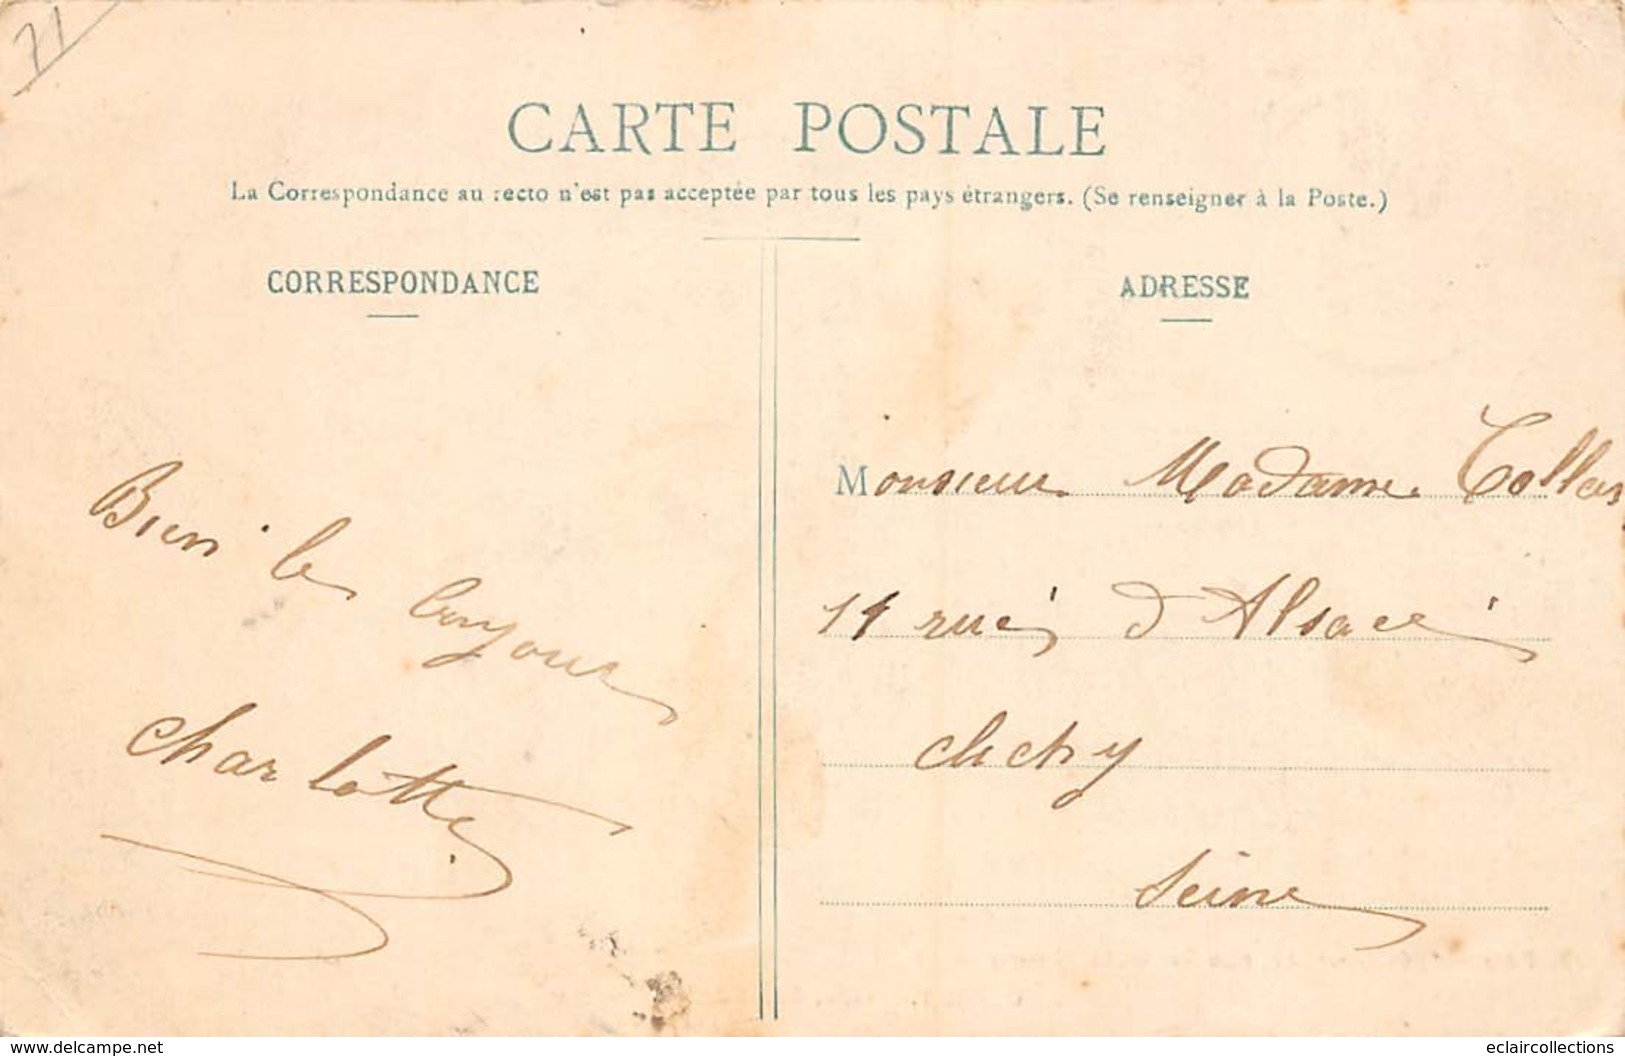 71
CARTE POSTALE
La Correspondance au recto n'est pas acceptée par tous les pays étrangers. (Se renseigner à la Poste.)
CORRESPONDANCE
Bien le
Charlotte
ADRESSE
Monsieur Madame Collas
11 rue d'Alsace
Clichy
Seine
www.delcampe.net
eclaircollections